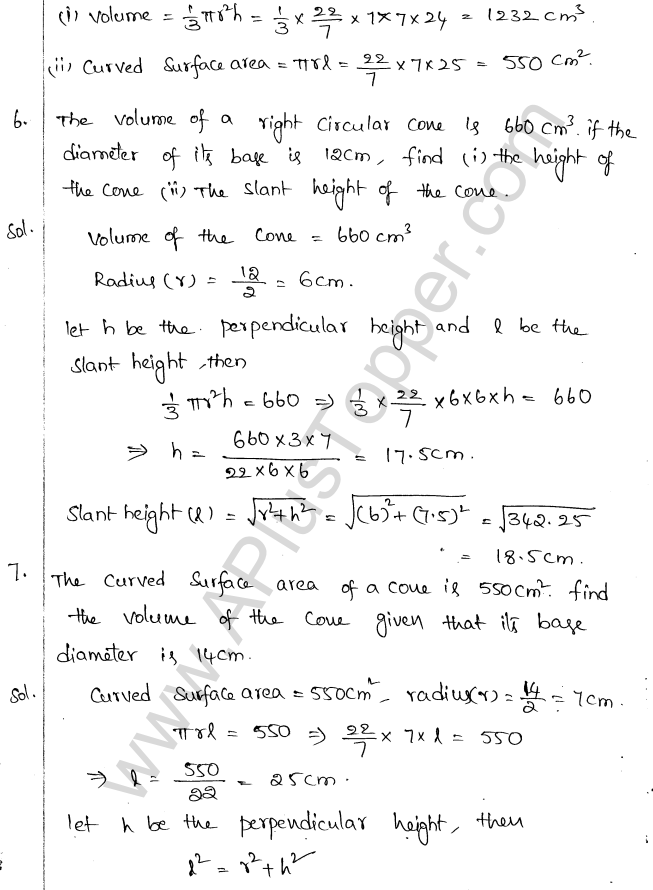 (i) Volume = 1/3 πr²h = 1/3 × 22/7 × 7 × 7 × 24 = 1232 cm³.
(ii) Curved Surface area = πrl = 22/7 × 7 × 25 = 550 cm².
6. The volume of a right circular cone is 660 cm³. if the
diameter of its base is 12cm, find (i) the height of
the cone (ii) The slant height of the cone.
Sol. Volume of the cone = 660 cm³
Radius (r) = 12/2 = 6cm.
let h be the perpendicular height and l be the
slant height, then
1/3 πr²h = 660 ⇒ 1/3 × 22/7 × 6×6×h = 660
⇒ h = 660×3×7/22×6×6 = 17.5cm.
Slant height (l) = √r²+h² = √(6)²+(7.5)² = √342.25
= 18.5cm.
7. The curved surface area of a cone is 550cm². find
the volume of the cone given that its base
diameter is 14cm.
Sol. Curved Surface area = 550cm², radius(r) = 14/2 = 7cm.
πrl = 550 ⇒ 22/7 × 7 × l = 550
⇒ l = 550/22 = 25cm.
let h be the perpendicular height, then
l² = r² + h²
www.APlusTopper.com